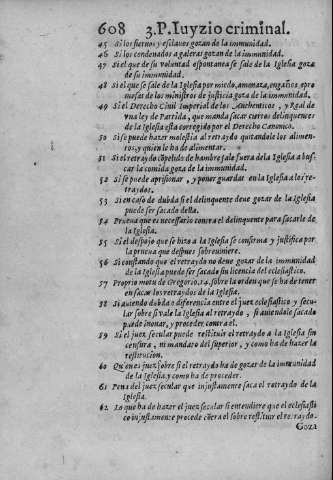 608 3.P. Iuyzio criminal.
45 Si los siervos y esclavos gozan de la immunidad.
46 Si los condenados a galeras gozan de la immunidad.
47 Si el que de su voluntad espontanea se sale de la Iglesia goza
de su immunidad.
48 Si el que se sale de la Iglesia por miedo, amenaza, engaños o pro
messas de los ministros de justicia goza de la immunidad.
49 Si el Derecho Civil Imperial de los Authenticos, y Real de
vna ley de Partida, que manda sacar ciertos delinquentes
de la Iglesia està corregido por el Derecho Canonico.
50 Si se puede hazer molestia al retraydo quitandole los alimen-
tos, y quien le ha de alimentar.
51 Si el retraydo cõpelido de hambre sale fuera de la Iglesia a bus-
car la comida goza de la immunidad.
52 Si se puede aprisonar, y poner guardar en la Iglesia a los re-
traydos.
53 Si en caso de dubda si el delinquente deue gozar de la Iglesia
puede ser sacado della.
54 Prueua que es necessario contra el delinquente para sacarle de
la Iglesia.
55 Si el despojo que se hizo a la Iglesia se confirma y justifica por
la prueua que despues sobreuiniere.
56 Si constando que el retraydo no deue gozar de la immunidad
de la Iglesia puede ser sacado sin licencia del eclesiastico.
57 Proprio motu de Gregorio.14. sobre la orden que se ha de tener
en sacar los retraydos de la Iglesia.
58 Si auiendo dubda o diferencia entre el juez eclesiastico y secu-
lar sobre si vale la Iglesia al retraydo, si auiendole sacado
puede inouar, y proceder contra el.
59 Si el juez secular puede restituir el retraydo a la Iglesia sin
censura, ni mandato del superior, y como ha de hazer la
restitucion.
60 Quien es juez sobre si el retraydo ha de gozar de la immunidad
de la Iglesia, y como ha de proceder.
61 Pena del juez secular que injustamente saca el retraydo de la
Iglesia.
62 Lo que ha de hazer el juez secular si entendiere que el eclesiasti
co injustamente procede cõtra el sobre restituir el retraydo.
Goza